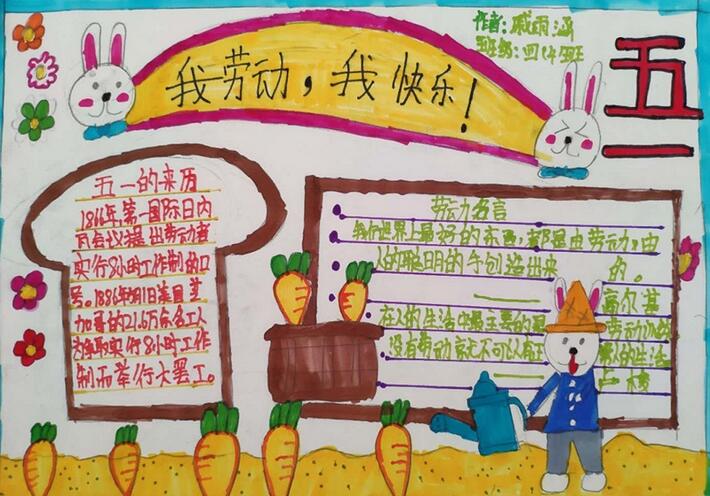 作者:戚雨涵
班级:四(4)班
我劳动,我快乐!
五一
五一的来历
1866年,第一国际日内
瓦会议提出劳动者
实行8小时工作制的口
号。1886年5月1日美国芝
加哥的21.6万余名工人
为争取实行8小时工作
制而举行大罢工。
劳动名言
我们世界上最好的东西,都是由劳动,由
人的聪明的手创造出来 的。
—— 高尔基
在人的生活中最主要的是 劳动
没有劳动就不可以有正 的生活